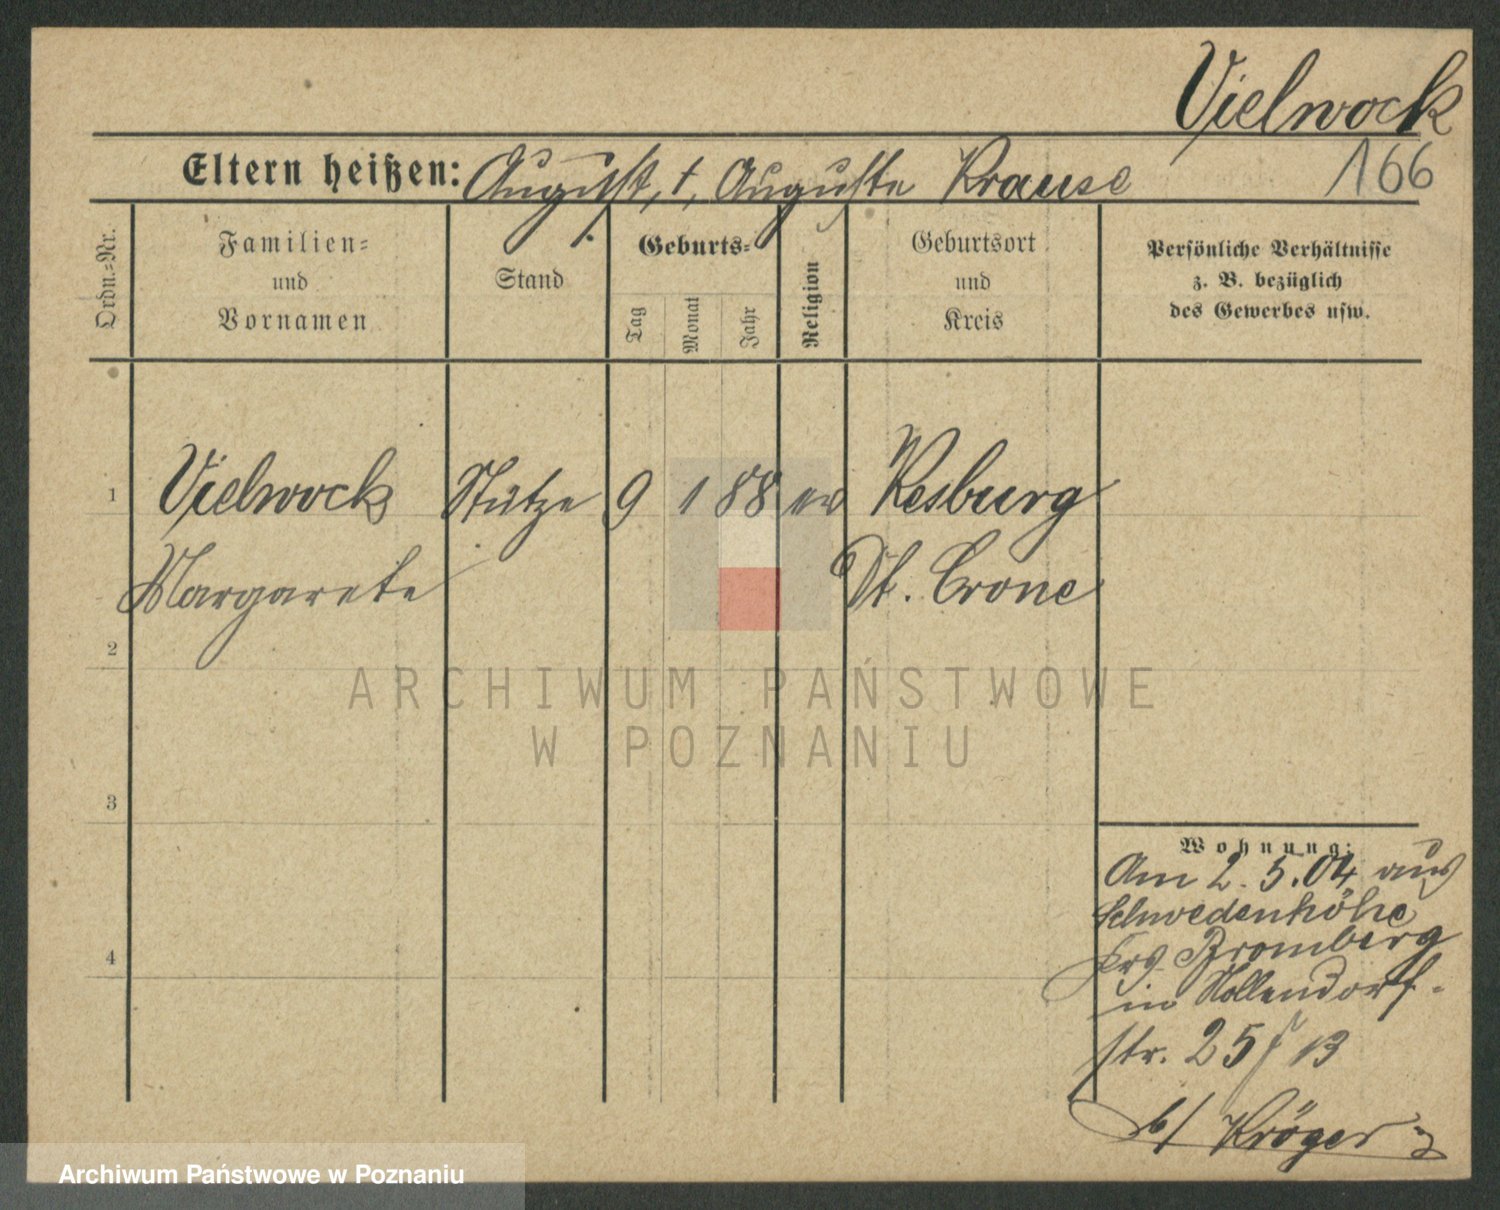 Vielwock
166
Eltern heißen: August, †, Auguste Krause
Ordn.=Nr.
Familien=
und
Vornamen
Stand
Geburts=
Tag
Monat
Jahr
Religion
Geburtsort
und
Kreis
Persönliche Verhältnisse
z. B. bezüglich
des Gewerbes usw.
1 Vielwock Stütze 9 1 88 ev Kesburg
Margarete Dt. Crone
2
3
4
Wohnung:
Am 2.5.04 aus
Schwedenhöhe
Krs Bromberg
in Nollendorf-
str. 25/13
b/ Kröger
ARCHIWUM PAŃSTWOWE
W POZNANIU
Archiwum Państwowe w Poznaniu